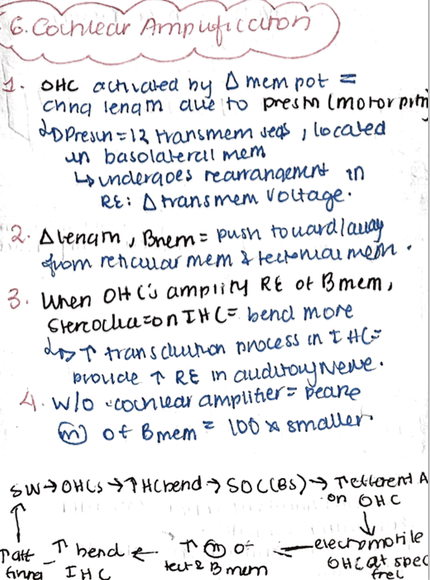 6. Cochlear Amplification
1. OHC activated by Δ mem pot =
chng length due to prestin (motor prtn)
↳ Prestin = 12 transmem segs, located
in basolateral mem
↳ undergoes rearrangement in
RE: Δ transmem voltage.
2. Δ length, Bmem = push toward/away
from reticular mem & tectorial mem.
3. When OHC's amplify RE of Bmem,
stereocilia on IHC = bend more
↳ ↑ transduction process in IHC =
provide ↑ RE in auditory nerve.
4. w/o cochlear amplifier = peak
(m) of Bmem = 100x smaller.
SW → OHCs → ↑ HC bend → SOC (BS) → ↑ efferent A
on OHC
electromotile
OHC at spec
freq
← ↑ (m) of
tect & B mem
← ↑ bend
IHC